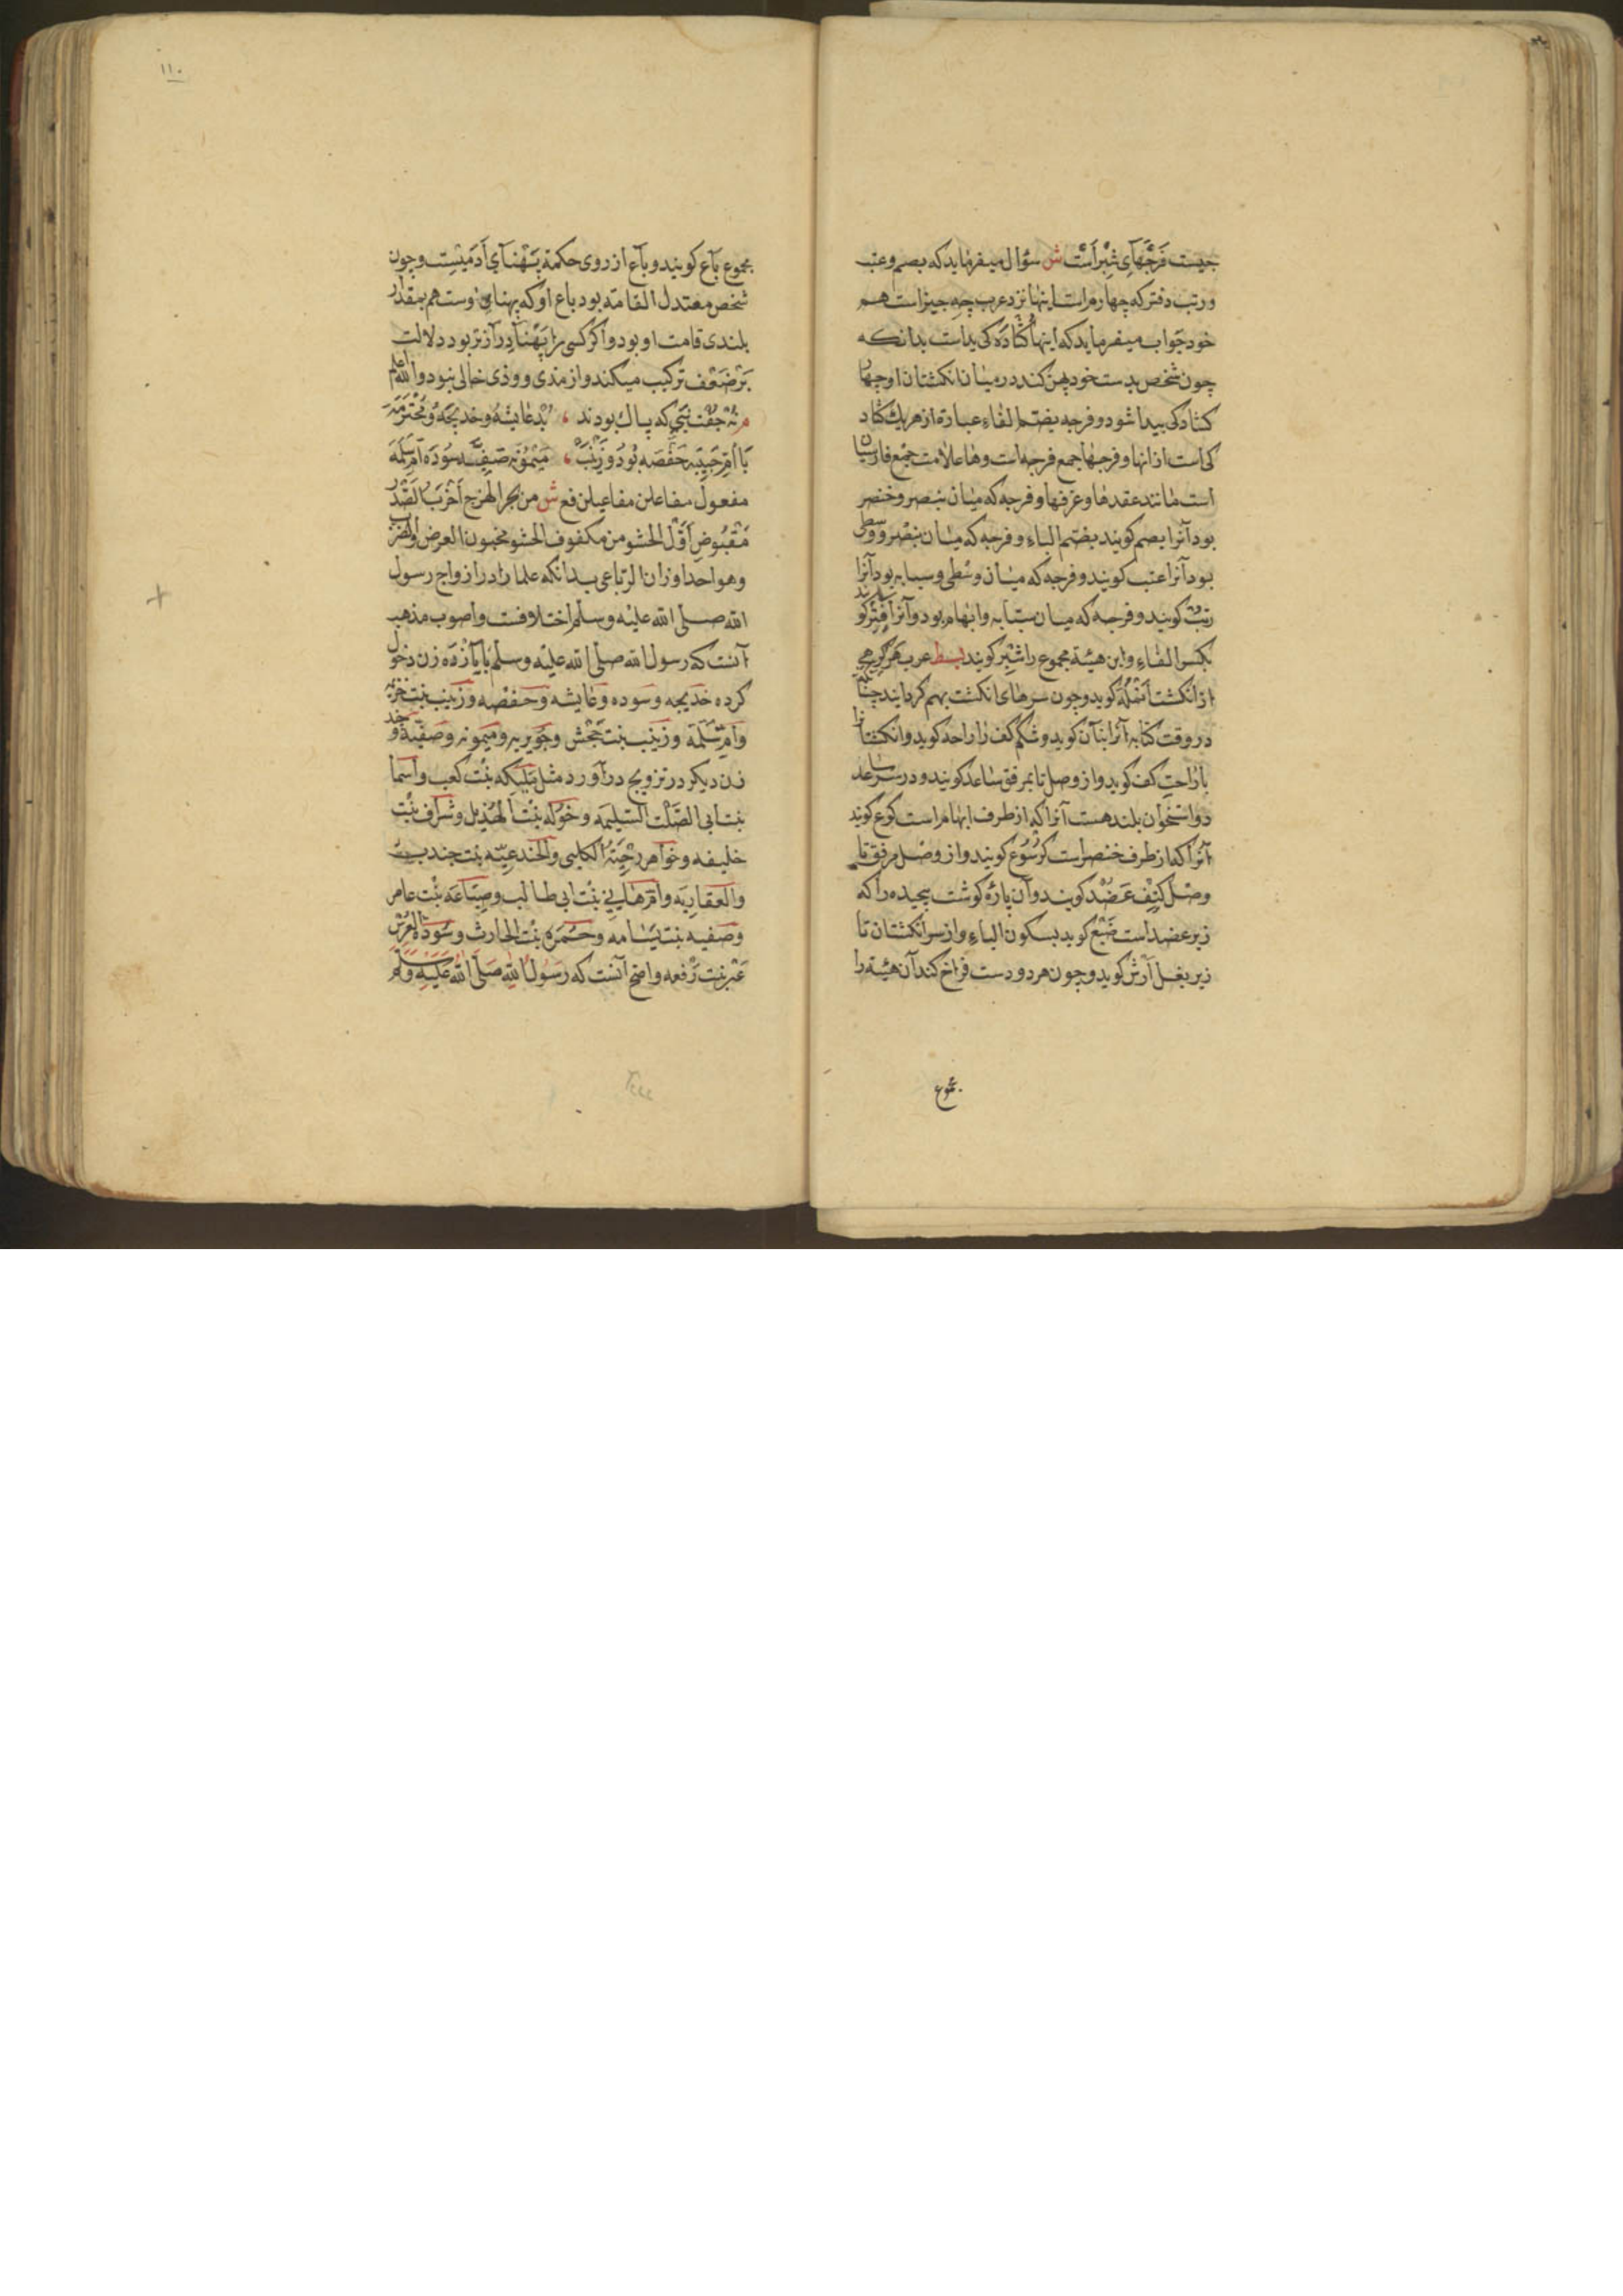 جیست فَرجْهآیِ شِبْراَسْت ش سؤال میفرماید که بصم و عتب
و رتب دفتر که چهارم است اینها نزد عرب چه جیز است هم
خود جواب میفرماید که اینها کشادَه کی ید است بدانکه
چون شخص بدست خود پهن کند در میان انکشتان او چهار
کشادکی بیدا شود و فرجه بضتم الفاء عبارة از هر یك کشاد
کی است از انها و فرجها جمع فرجه است و ها علامت جمع فارسیان
است مانند عقدها و غرفها و فرجه که میان بنصر و خنصر
بود آنرا بصم کویند بضتم الباء و فرجه که میان بنصر و وسطی
بود آنرا عتب کویند و فرجه که میان وسطی و سبابه بود آنرا
رتب کویند و فرجه که میان سبّابه و ابهام بود و آنرا فِتْر کو
بکسر الفاء و این هیئة مجموع را شبْر کویند بسط عرب هر کرهی
از انکشت اَنْمُلَه کوید و چون سرهای انکشت بهم کرد آیند چنانکه
در وقت کتابه آنرا بَنآن کوید و شکم کف را راحد کوید و انکشتانرا
با راحت کف کوید و از وصل تا بمرفق ساعد کویند و در سر ساعد
دو استخوان بلند هست آنرا که از طرف ابهام است کوع کویند
آنرا که از طرف خنصر است کُرْسُوع کویند و از وصل مرفق تا
وصل کتِفْ عَضُدْ کویند و آن پارهٔ کوشت پیچیده را که
زیر عضد است ضَبْع کوید بسکون الباء و از سر انکشتان تا
زیر بغل اَرَش کوید و چون هر دو دست فراخ کند آن هیئة را
مجموع
١١٠
مجموع بآع کویند و بآع از روی حکمة پَهْنآیِ آدَمیْسِت و جون
شخص معتدل القامة بود باع او که پهنای اوست هم بمقدار
بلندی قامت او بود و اکر کسی را پَهْنآ درآزتر بود دلالت
بَرْ ضَعْف ترکیب میکند و از مذی و وذی خالی نبود والله اعلم
م نُه جُفْت نَبی که پاك بودند ، بُدْ عایشَه و خدیجَه و محْتَرمَه
بَا اُمّ حَبِیبَه حَفْصَه بُود و زَیْنَبْ ، مَیْمُونَه صَفیّه سَوْدَه اُمّ سَلَمَه
مفعول مفاعلن مفاعیلن فع ش من بحر الهزج اَخْرَبُ الصَّدْر
مَقْبُوضِ اَوّل الحشو من مکفوف الحشو مخبون العرض والضرب
و هو احد اوزان الرباعی بدانکه علما را در ازواج رسول
الله صلی الله علیه وسلم اختلافست و اصوب مذهب
آنست که رسول الله صلّی الله علیه وسلّم با یازْدَه زن دخول
کرده خدیجه و سوده و عایشه و حفصه و زینب بنت خزیمه
و ام سَلَمَه و زینب بنت جَحْش و جویریه و میمونه و صفیّة و چند
زن دیکر در تزویج درآورد مثل مُلَیکه بنت کعب و اسما
بنت ابی الصّلت السلیمَه و خَوْلَه بنت الهُذیل و شراف بنت
خلیفه و خواهر دِحْیَةُ الکلبی والجندعیّه بنت جندب
والعقاریَه و ام هانی بنت ابی طالب و ضباعَه بنت عامر
و صفیه بنت بشامه و حمْرَه بنت الحارث و سَوْدَه
عنْبر بنت رفعه و اصح آنست که رَسُولُ اللهِ صَلّی اللهُ عَلَیْهِ وَسَلّم